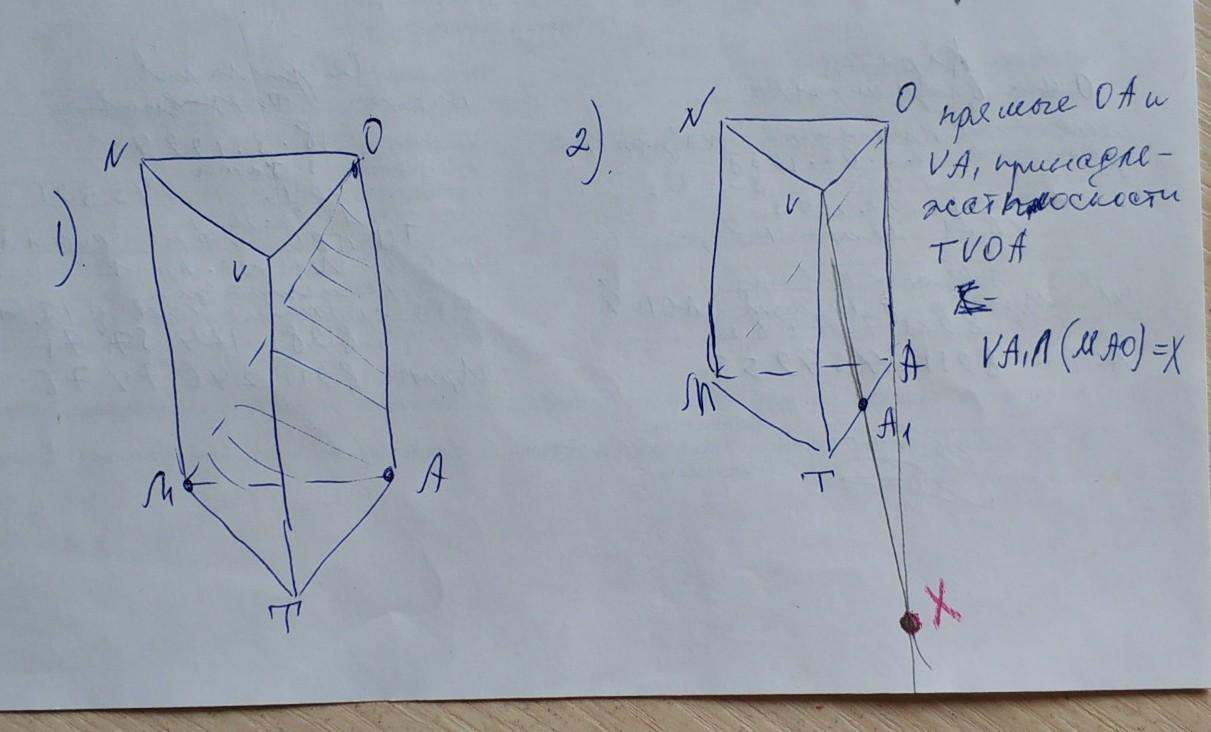 1).
N
O
V
M
A
T
2).
N
O
V
M
A
A1
T
X
прямые OA и
VA, принадле-
жат плоскости
TVOA
VA1∩(MAO)=X